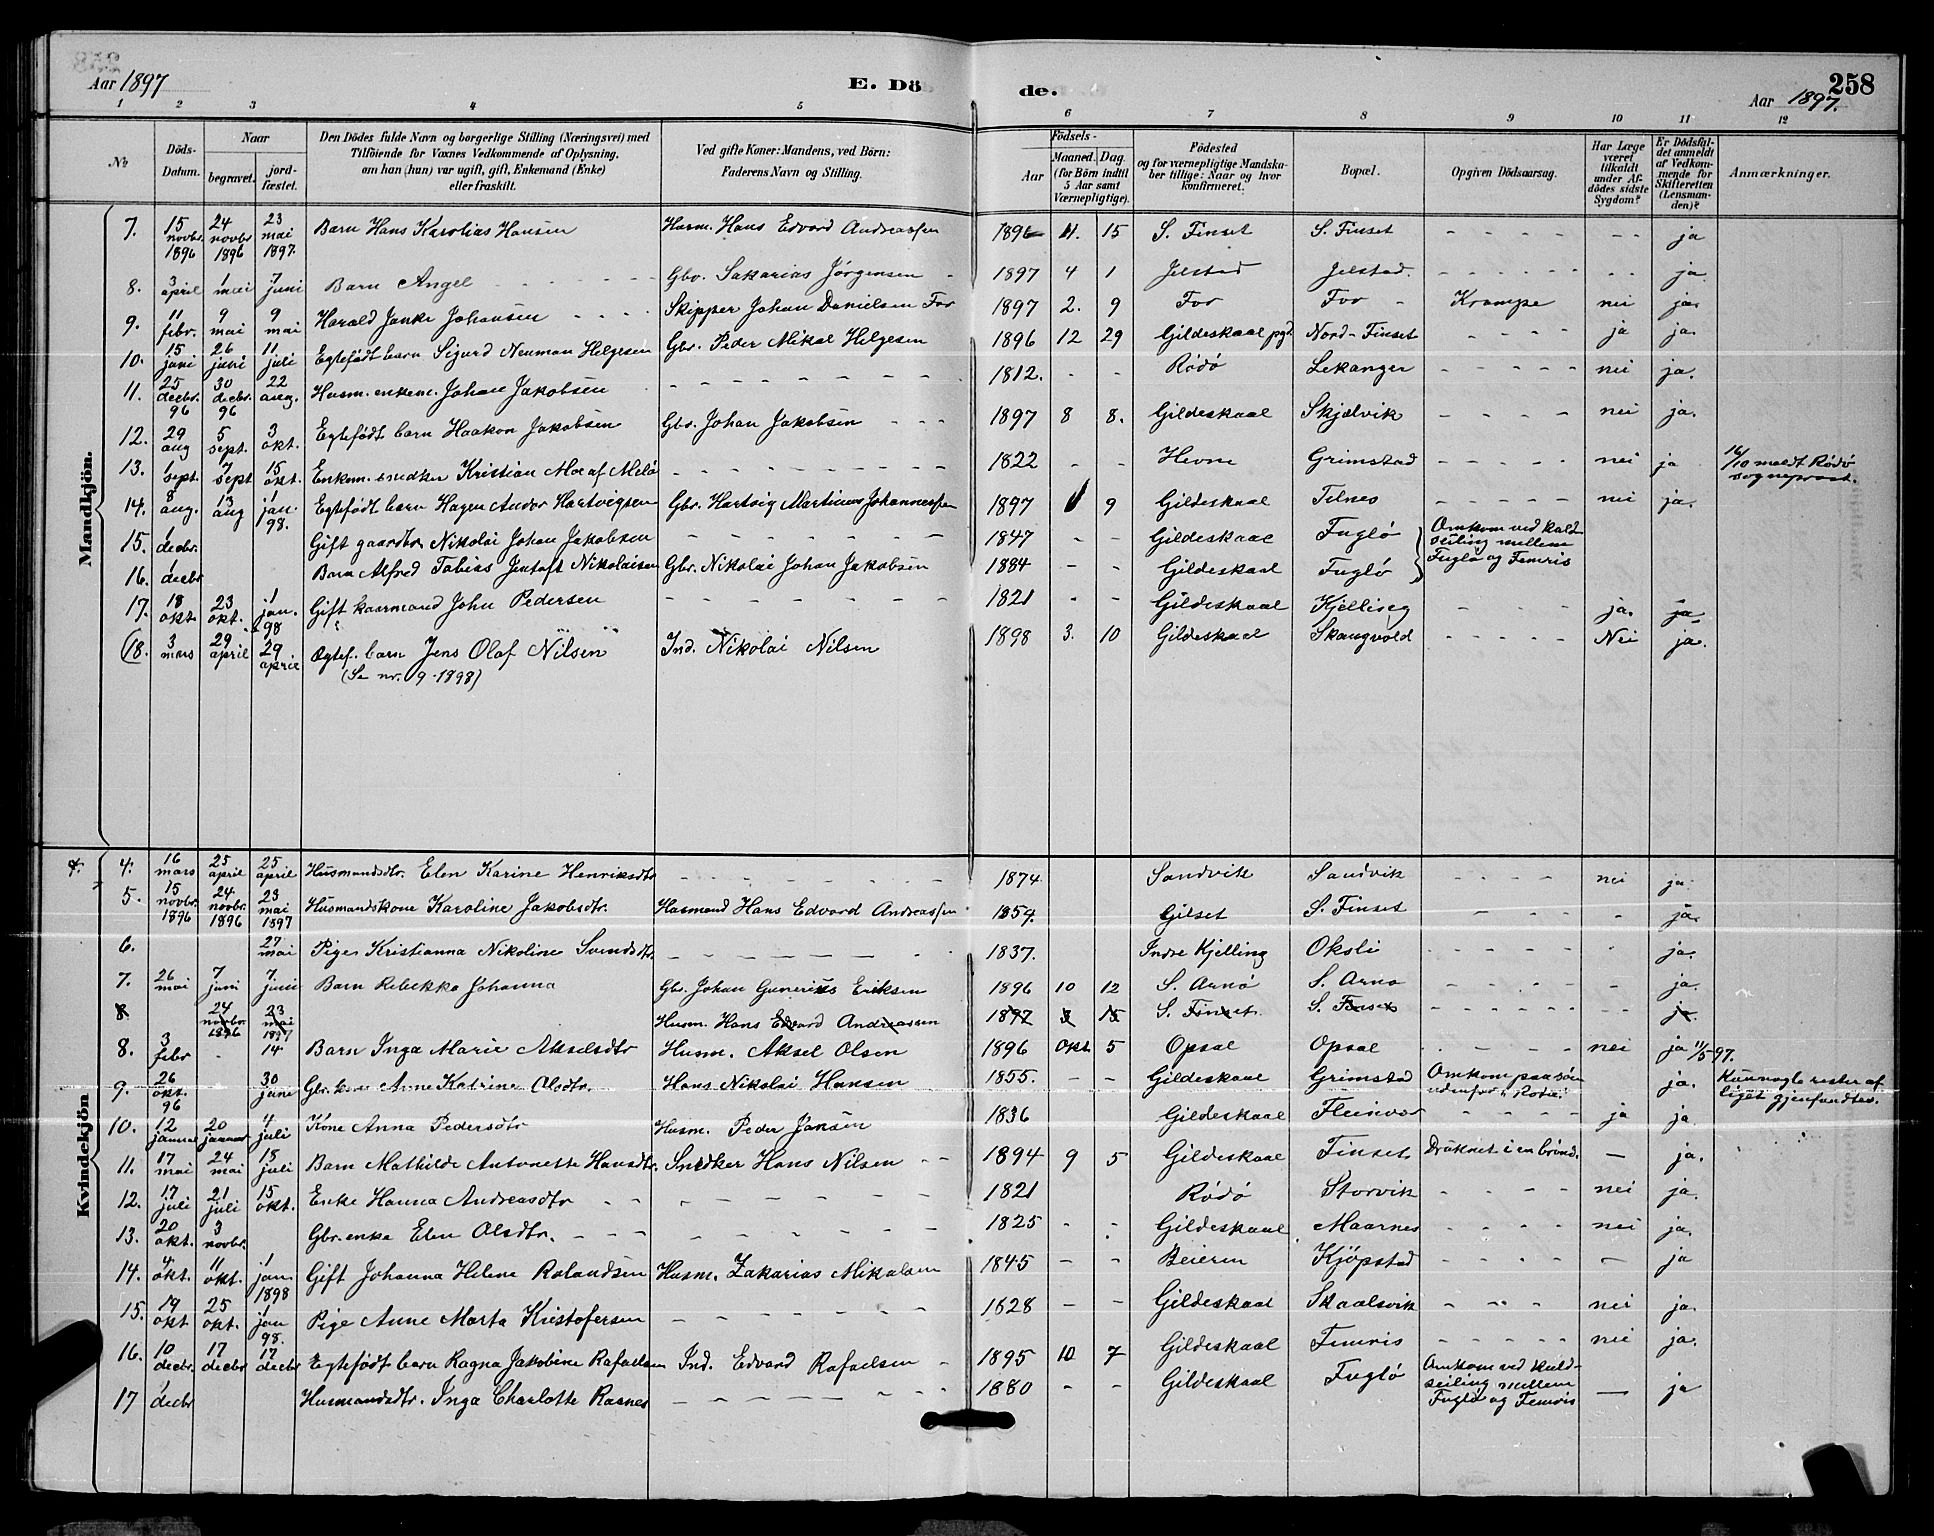 258
Aar 1897
E. Döde.
Aar 1897.
1 2 3 4 5 6 7 8 9 10 11 12
No
Döds-Datum.
Naar
begravet.
jord-fæstet.
Den Dödes fulde Navn og borgerlige Stilling (Næringsvei) med
Tilföiende for Voxnes Vedkommende af Oplysning,
om han (hun) var ugift, gift, Enkemand (Enke)
eller fraskilt.
Ved gifte Koner: Mandens, ved Börn:
Faderens Navn og Stilling.
Födsels-
Aar
Maaned. Dag.
(for Börn indtil
5 Aar samt
Værnepligtige).
Födested
og for værnepligtige Mandska-
ber tillige: Naar og hvor
konfirmeret.
Bopæl.
Opgiven Dödsaarsag.
Har Læge
været
tilkaldt
under Af-
dödes sidste
Sygdom?
Er Dödsfal-
det anmeldt
af Vedkom-
mende for
Skifteretten
(Lensman-
den)?
Anmærkninger.
Mandkjön.
7. 15 novbr. 1896 24 novbr 1896 23 mai 1897. Barn Hans Karolias Hansen Husm. Hans Edvard Andreassen 1896 11. 15 S. Finset S. Finset - - ja
8. 3 april 1 mai 7 juni Barn Angel - - - Gbr. Sakarias Jørgensen 1897 4 1 Jelstad Jelstad. - - - ja
9. 11 febr. 9 mai 9 mai Harald Janke Johansen - - - Skipper Johan Danielsen For 1897 2. 9 For For - Krampe nei ja.
10. 15 juni 26 juni 11 juli Egtefødt barn Sigurd Neuman Helgesen Gbr. Peder Mikal Helgesen 1896 12 29 Gildeskaal pgd. Nord-Finset - - - ja ja.
11. 25 decbr. 96 30 decbr. 96 22 aug. Husm. enkem. Johan Jakobsen - - - 1812. - - Rødø Lekanger - - - nei ja.
12. 29 aug 5 sept. 3 okt. Egtefødt barn Haakon Jakobsen Gbr. Johan Jakobsen - - - 1897 8 8. Gildeskaal Skjælvik - - - nei ja.
13. 1 sept. 7 sept 15 okt. Enkem. snedker Kristian Moe af Melø - - - 1822 - - Hevne Grimstad - - - nei ja 16/10 meldt Rødø sogneprest.
14. 8 aug. 13 aug 1 jan. 98. Egtefødt barn Hagen Andor Hartvigsen Gbr. Hartvig Martinus Johannessen 1897 1 9 Gildeskaal Telnes - - - nei ja.
15. 1 decbr. Gift gaardbr. Nikolai Johan Jakobsen - - - 1847 - - Gildeskaal Fuglø Omkom ved kuld-
seiling mellem
Fuglø og Femris
16. 1 decbr Barn Alfred Tobias Jentoft Nikolaisen Gbr. Nikolai Johan Jakobsen 1884 - - Gildeskaal Fuglø
17. 18 okt. 23 okt. 1 jan. 98 Gift kaarmand John Pedersen - - - 1821 - - Gildeskaal Kjelliseg - - - ja. ja
(18. 3 mars 29 april 29 april Ægtef. barn Jens Olaf Nilsen Ind. Nikolai Nilsen 1898 3. 10 Gildeskaal Skaugvold - - - Nei ja.
(Se nr. 9-1898)
Kvindekjön
4. 4. 16 mars 25 april 25 april Husmandsdtr. Elen Karine Henriksdtr - - - 1874 Sandvik Sandvik nei ja.
5. 15 novbr. 1896 24 novbr. 1896 23 mai 1897 Husmandskone Karoline Jakobsdtr. Husmand Hans Edvard Andreassen 1854. Gilset S. Finset - - - ja.
6. 27 mai Pige Kristianna Nikoline Svendsdtr. - - - 1837. Indre Kjelling Oksli - - - ja.
7. 26 mai 7 juni 7. juni Barn Rebekka Johanna Gbr. Johan Gunerius Eriksen 1896 10 12 S. Arnø S. Arnø - - - ja.
8 24 novbr. 1896 23 mai 1897 Husm. Hans Edvard Andreassen 1897 3 15 S. Finset. S. Finset - - - ja.
8. 3 febr - 14 Barn Inga Marie Akselsdtr Husm. Aksel Olsen 1896 Okt. 5 Opsal Opsal - - - nei ja 11/5 97.
9. 26 okt. 96 30 juni Gbr. kone Anne Katrine Olsdtr. Hans Nikolai Hansen 1855. - - Gildeskaal Grimstad Omkom paa søen
udenfor ja. Kunnogle rester af
liget gjenfundtes.
10. 12 januar 20 januar 4 juli Kone Anna Pedersdtr Husm. Peder Jansen 1836 Gildeskaal Fleinvær - - - ja ja
11. 17 mai 24 mai 18 juli Barn Mathilde Antonette Hansdtr. Snedker Hans Nilsen - - 1894 9 5 Gildeskaal Finset Druknet i en brønd. — ja.
12. 17 juli 21 juli 15 okt. Enke Hanna Andreasdtr - - - 1821 Rødø Storvik - - - nei ja.
13. 20 okt. 3 novbr. Gbr. enke Elen Olsdtr. - - - 1825 - - Gildeskaal Maarnes - - - nei ja.
14. 4 okt. 11 okt. 1 jan 1898 Gift Johanna Helene Rolandsen Husm. Zakarias Mikalsen 1845 - - Beieren Kjöpstad - - - ja
15. 19 okt 25 okt. 1 jan 98. Pige Anne Marta Kristofersen - - - 1828 - - Gildeskaal Skaalsvik - - - nei ja.
16. 10 decbr. 17 decbr 17 decbr Egtefødt barn Ragna Jakobine Rafaelsen Ind. Edvard Rafaelsen - 1895 10 7 Gildeskaal Femris - - - nei ja.
17 1 decbr Husmandsdtr. Inga Charlotte Rasnes - - - 1880 - - Gildeskaal Fuglø Omkom ved kuld-
seiling mellem
Fuglø og Femris — ja